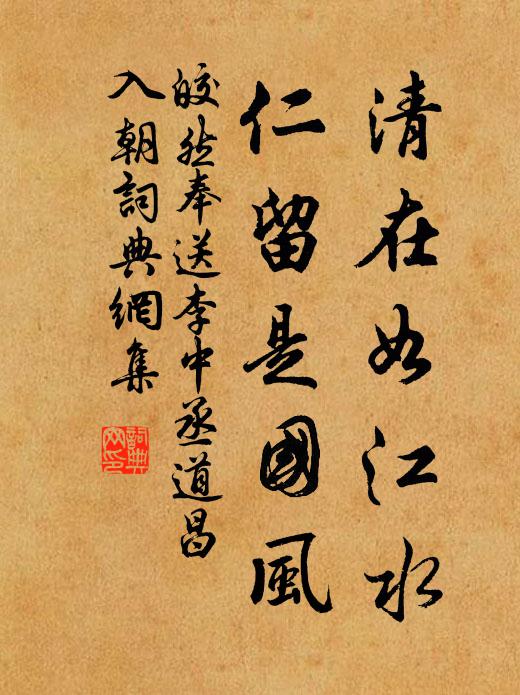 清在如江水
仁留是國風
皎然奉送李中丞道昌
入朝詞典網集
詞典
网印